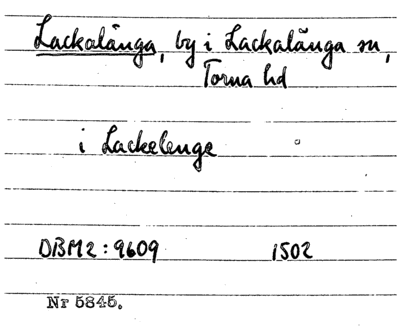 Lackalänga, by i Lackalänga sn,
Torna hd
i Lackelenge
DBM2:9609 1502
Nr 5845.